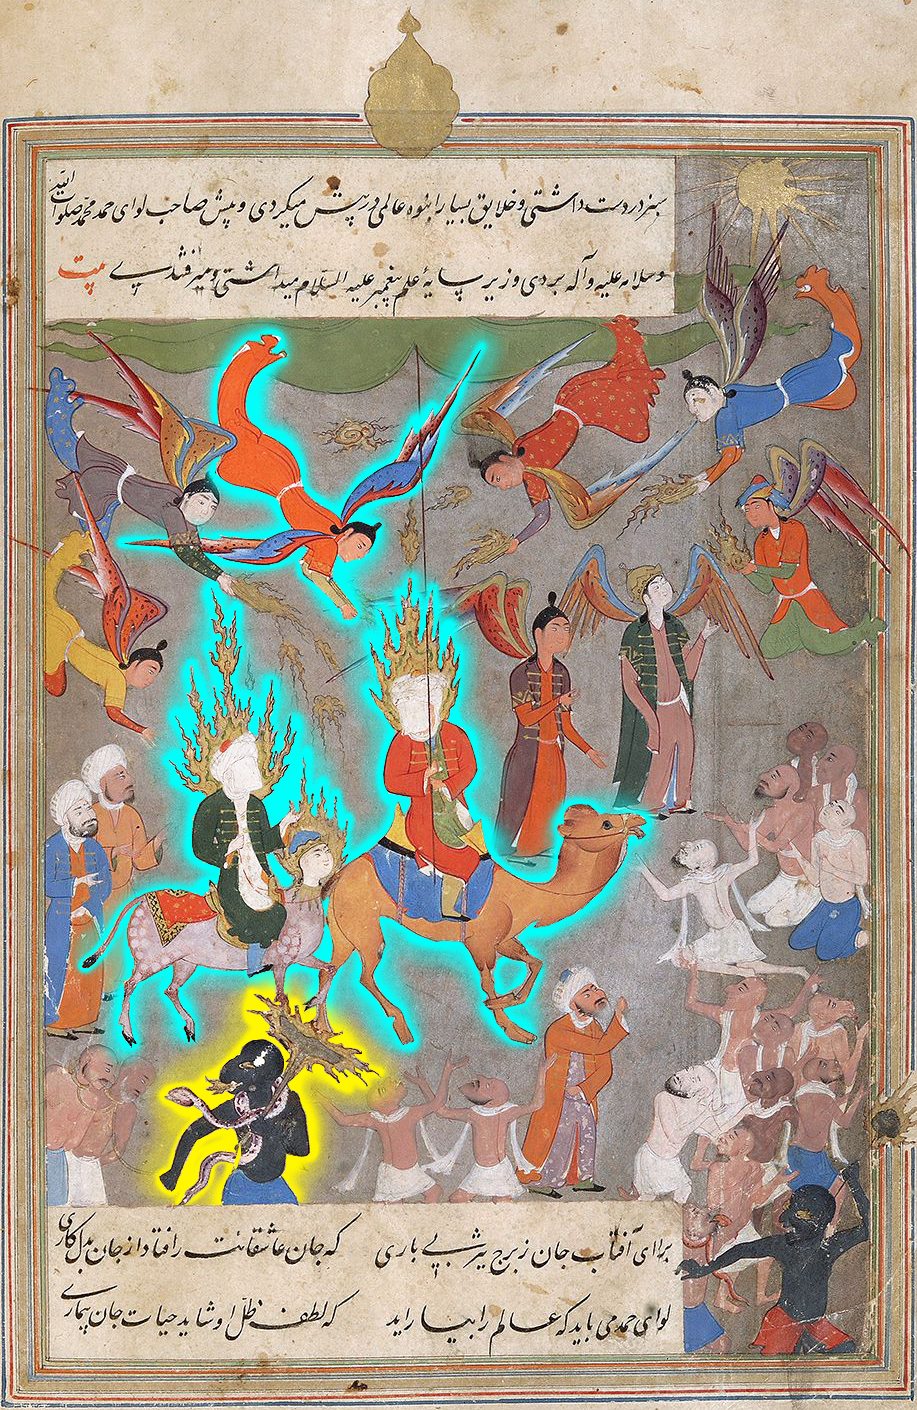 سبز در دست داشتی و خلایق بسیار انبوه عالمی در پیش میکردی و پیش صاحب لوای حمد محمد صلوات الله
وسلامه علیه وآله بردی و زیر سایهٔ علم پیغمبر علیه السلام میداشتی ومیرفتند پی بیت
برای آفتاب جان زبرج یثربی باری که جان عاشقانت را
لوای حمد می باید که عالم را بیاراید که لطف ظل او شاید حیات جان بیماری